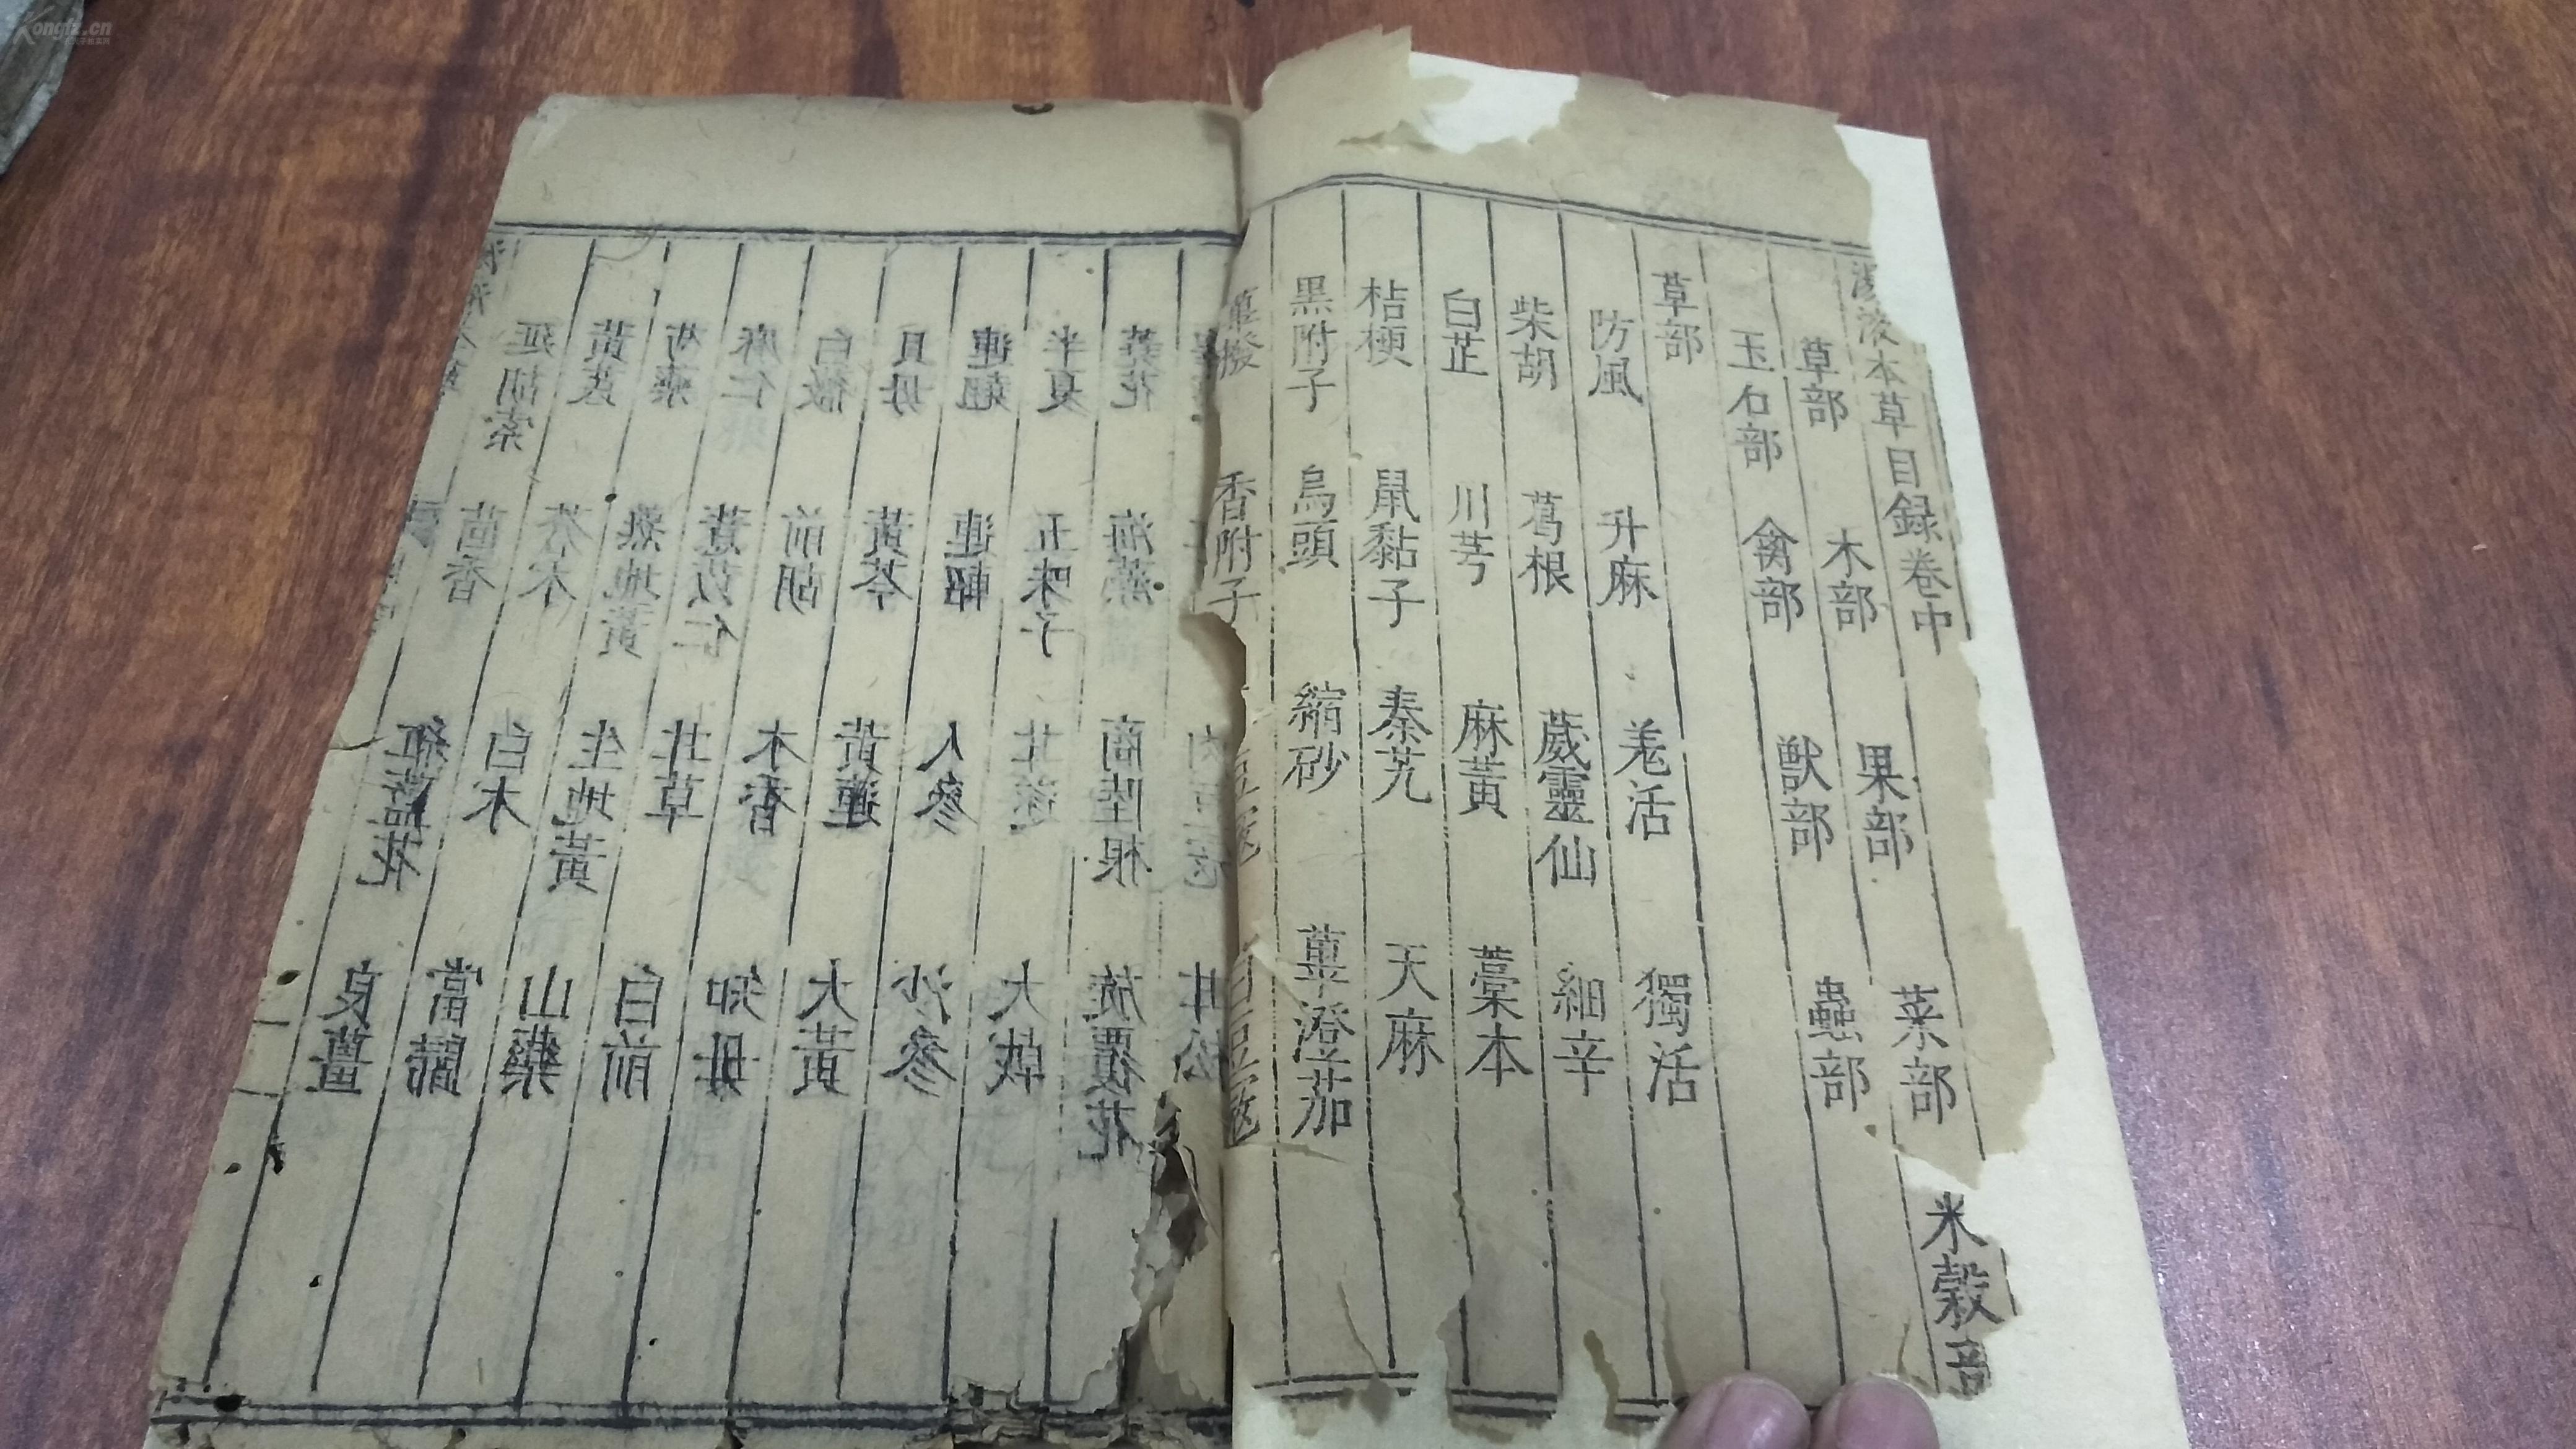 湯液本草目録卷中
草部 木部 果部 菜部 米穀部
玉石部 禽部 獣部 蟲部
草部
防風 升麻 羌活 獨活
柴胡 葛根 葳靈仙 細辛
白芷 川芎 麻黃 藁本
桔梗 鼠黏子 秦艽 天麻
黑附子 烏頭 縮砂 蓽澄茄
蓽撥 香附子 豆蔻 白豆蔻
延胡索 茴香 紅藍花 良薑
黃芪 蒼术 白术 當歸
芍藥 熟地黃 生地黃 山藥
麻仁 薏苡仁 甘草 白前
白薇 前胡 木香 知母
貝母 黃芩 黃連 大黃
連翹 連軺 人參 沙參
半夏 五味子 甘遂 大戟
蕘花 海藻 商陸根 旋覆花
Kongfz.cn